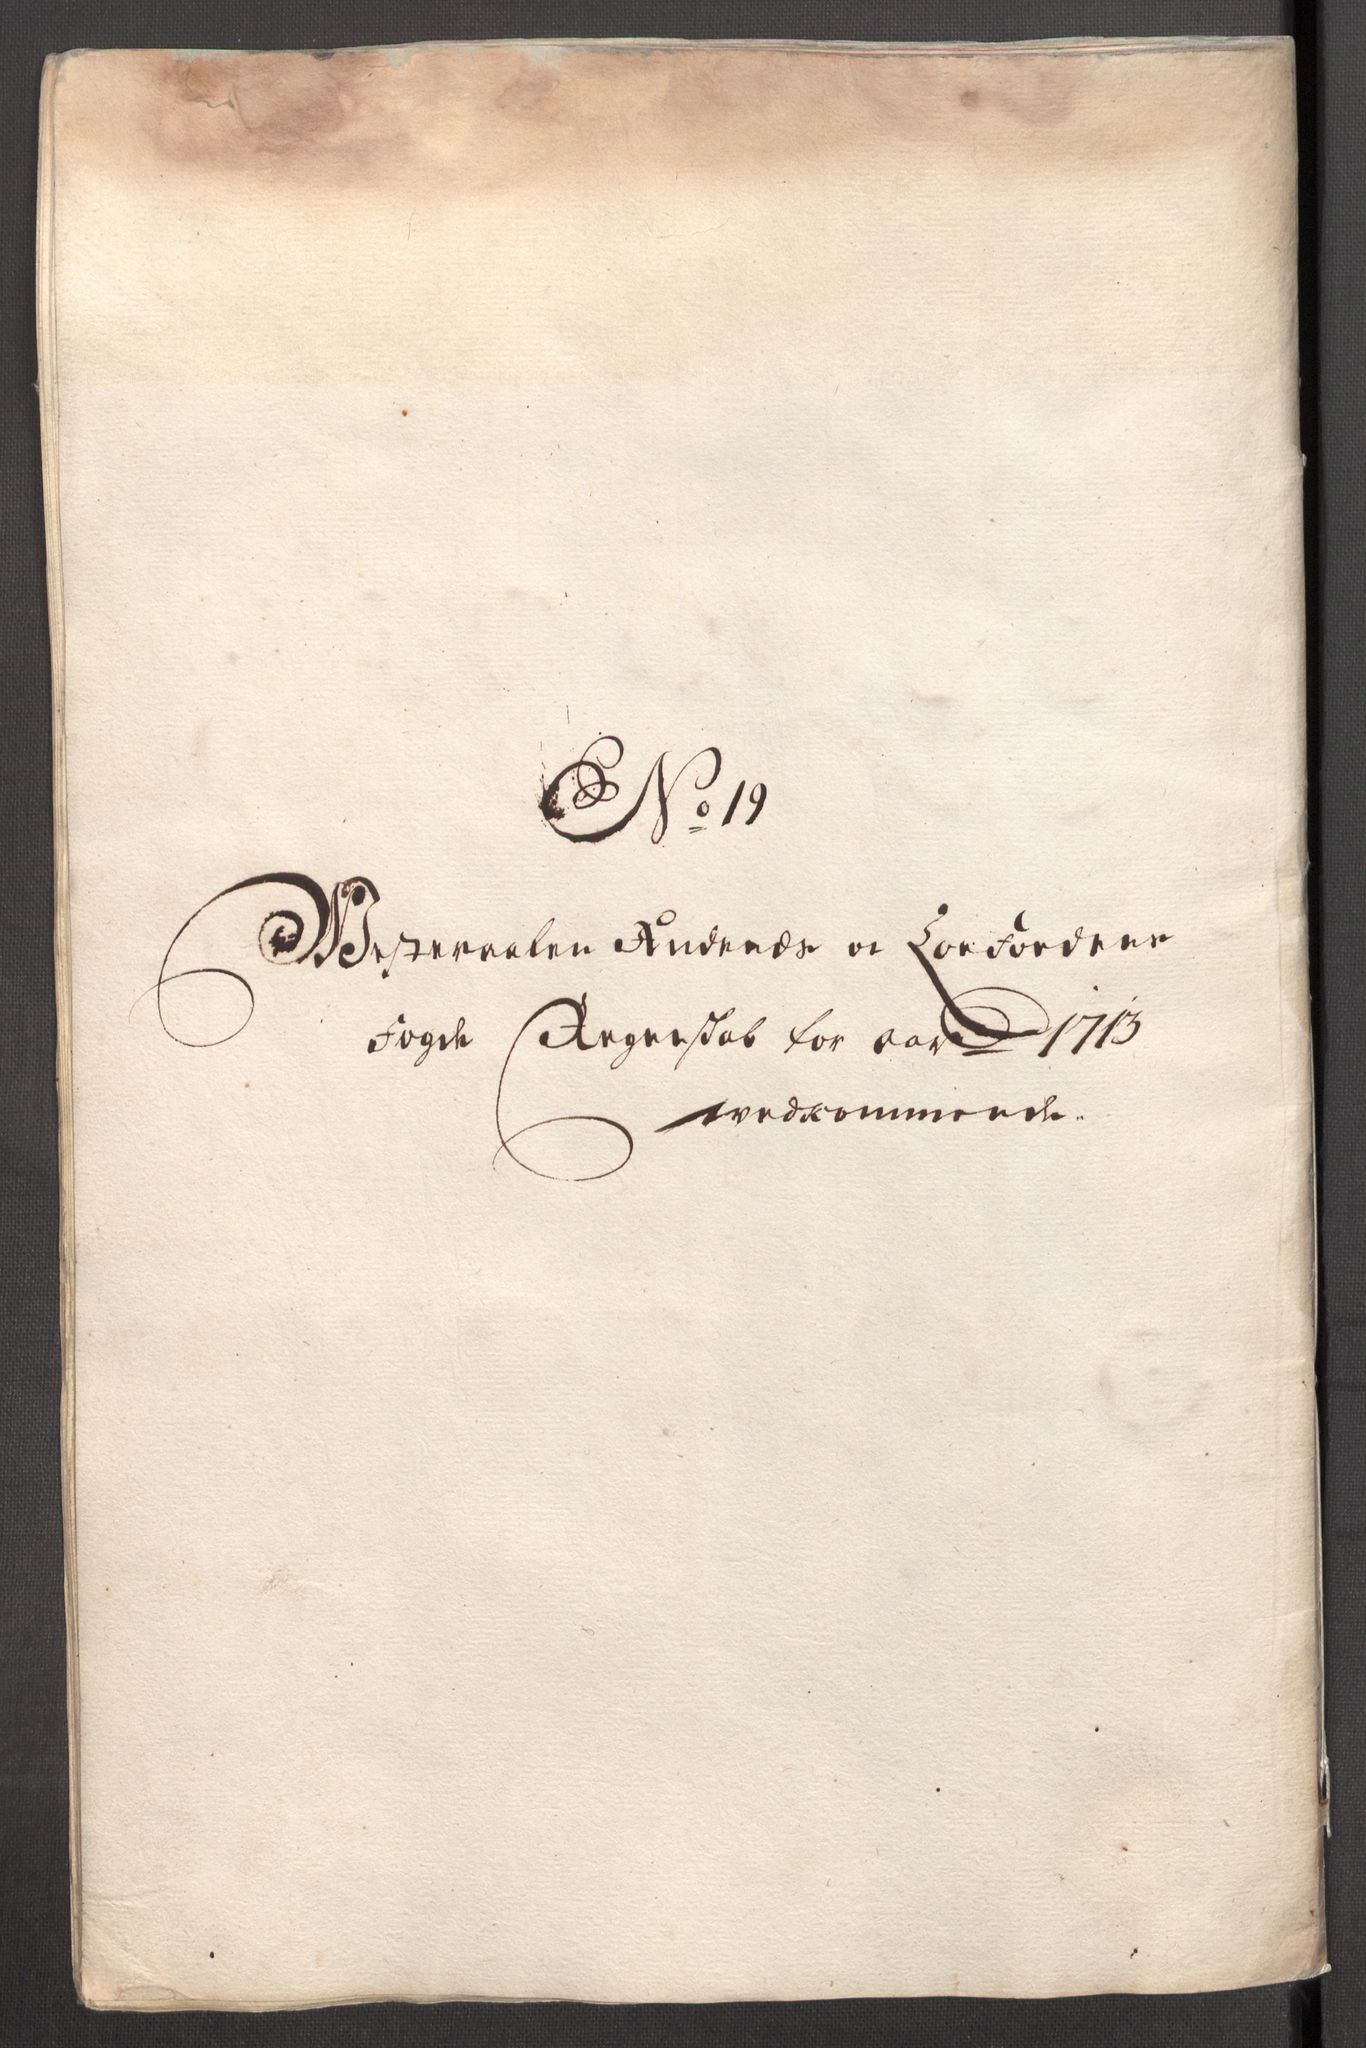 No 19
Westeraalen Andenæs oc Lofodens
Fogde Regenskab for aar 1713
wedkommende.